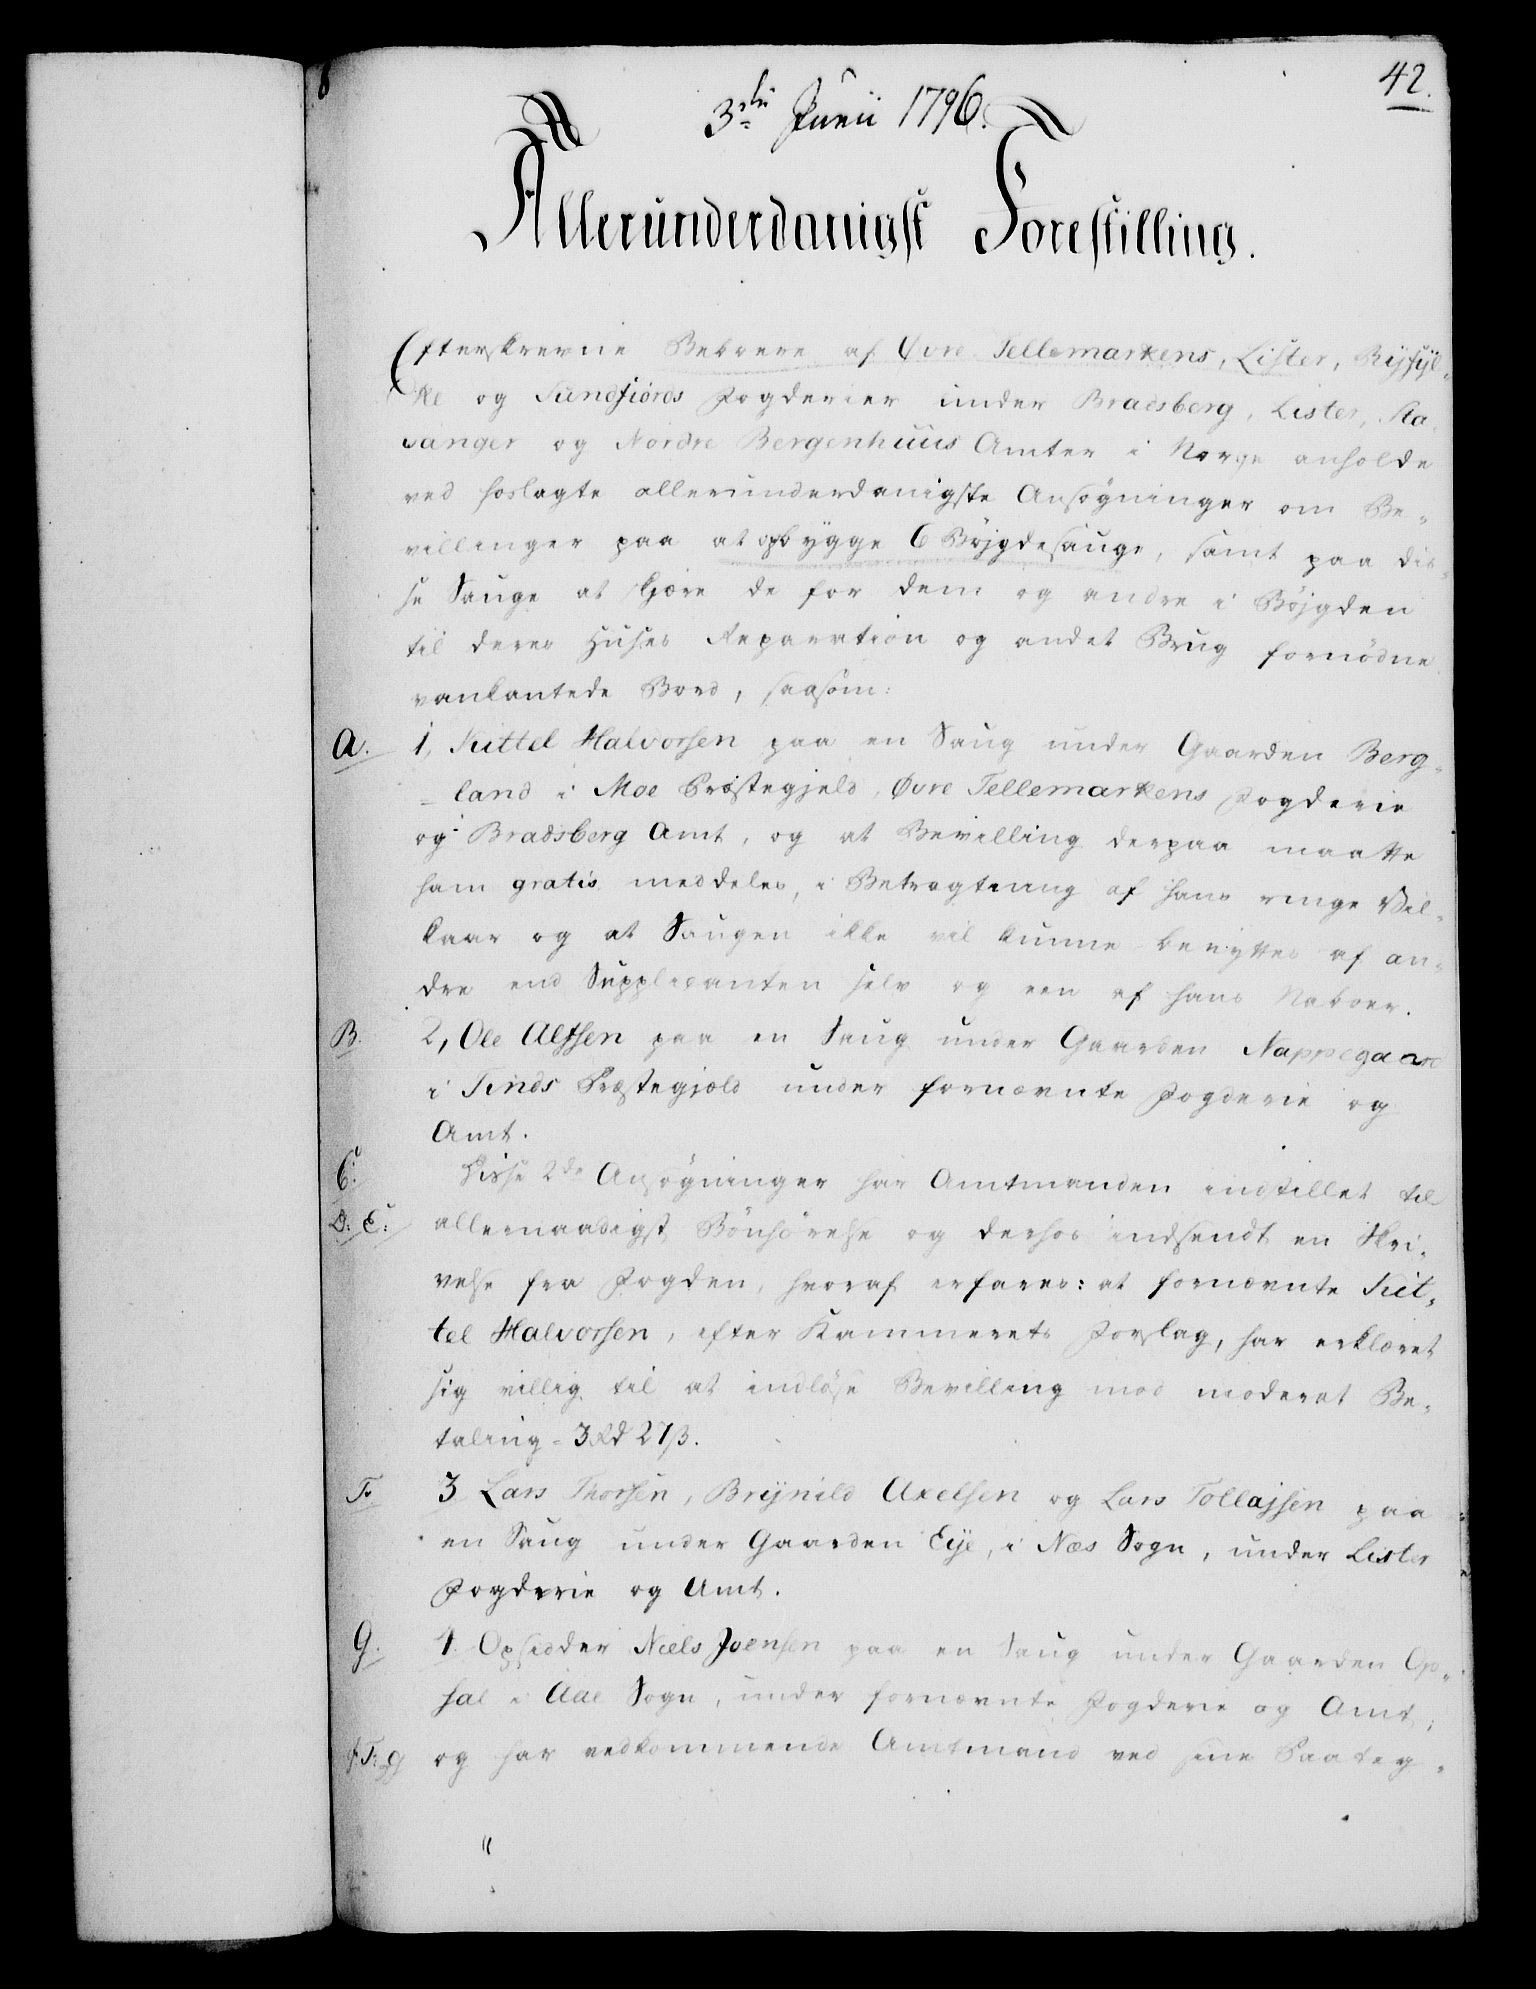 42.
3die Junii 1796.
Allerunderdanigst Forestilling.
Efterskrevne Beboere af Øvre Tellemarkens, Lister, Rÿfÿl-
ke og Sundfiords Fogderier under Bradsberg, Lister, Sta-
vanger og Nordre Bergenhuus Amter i Norge anholde
ved hoslagte allerunderdanigste Ansøgninger om Be-
villinger paa at opbygge 6 Bøjgdesauge, samt paa dis-
se Sauge at skjære de for dem og andre i Bøjgden
til deres Huses Reparation og andet Brug fornødne
vankantede Bord, saasom:
A. 1, Kittel Halvorsen paa en Saug under Gaarden Berg-
land i Moe Præstegjeld, Øvre Tellemarkens Fogderie
og Bradsberg Amt, og at Bevilling derpaa maatte
ham gratis meddeles, i Betragtning af hans ringe Vil-
kaar og at Saugen ikke vil kunne benyttes af an-
dre end Supplicanten selv og een af hans Naboer.
B. 2, Ole Alfsen paa en Saug under Gaarden Nappegaard
i Tinds Præstegjeld under fornævnte Fogderie og
Amt.
C: Disse 2de Ansøgninger har Amtmanden indstillet til
D: E: allernaadigst Bønhørelse og derhos indsendt en Skri-
velse fra Fogden, hvoraf erfares: at fornævnte Kit-
tel Halvorsen, efter Kammerets Forslag, har erklæret
sig villig til at indløse Bevilling mod moderat Be-
taling - 3 Rd 27 ß.
F. 3 Lars Thorsen, Brÿnild Axelsen og Lars Tollajsen paa
en Saug under Gaarden Eÿe, i Næs Sogn, under Lister
Fogderie og Amt.
G. 4. Opsidder Niels Joensen paa en Saug under Gaarden Op-
sal i Aae Sogn, under fornævnte Fogderie og Amt;
f. F: G og har vedkommende Amtmand ved sine Paateg-